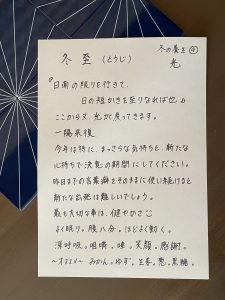 冬の養生④
冬至(とうじ) 光
『日南の限りを行きて、
日の短かきを至りなれば也』
ここから又、光が戻ってきます。
一陽来復
今年は特に、まっさらな気持ちと、新たな
心持ちで決意の期間にしてください。
昨日までの言葉癖をそのままに使い続けると
新たな出発は難しいでしょう。
最も大切な事は、健やかさ
よく眠り。腹八分。ほどよく動く。
深呼吸。咀嚼。唾。笑顔。感謝。
〜オススメ〜 みかん。ゆず。生姜。葱。黒糖。